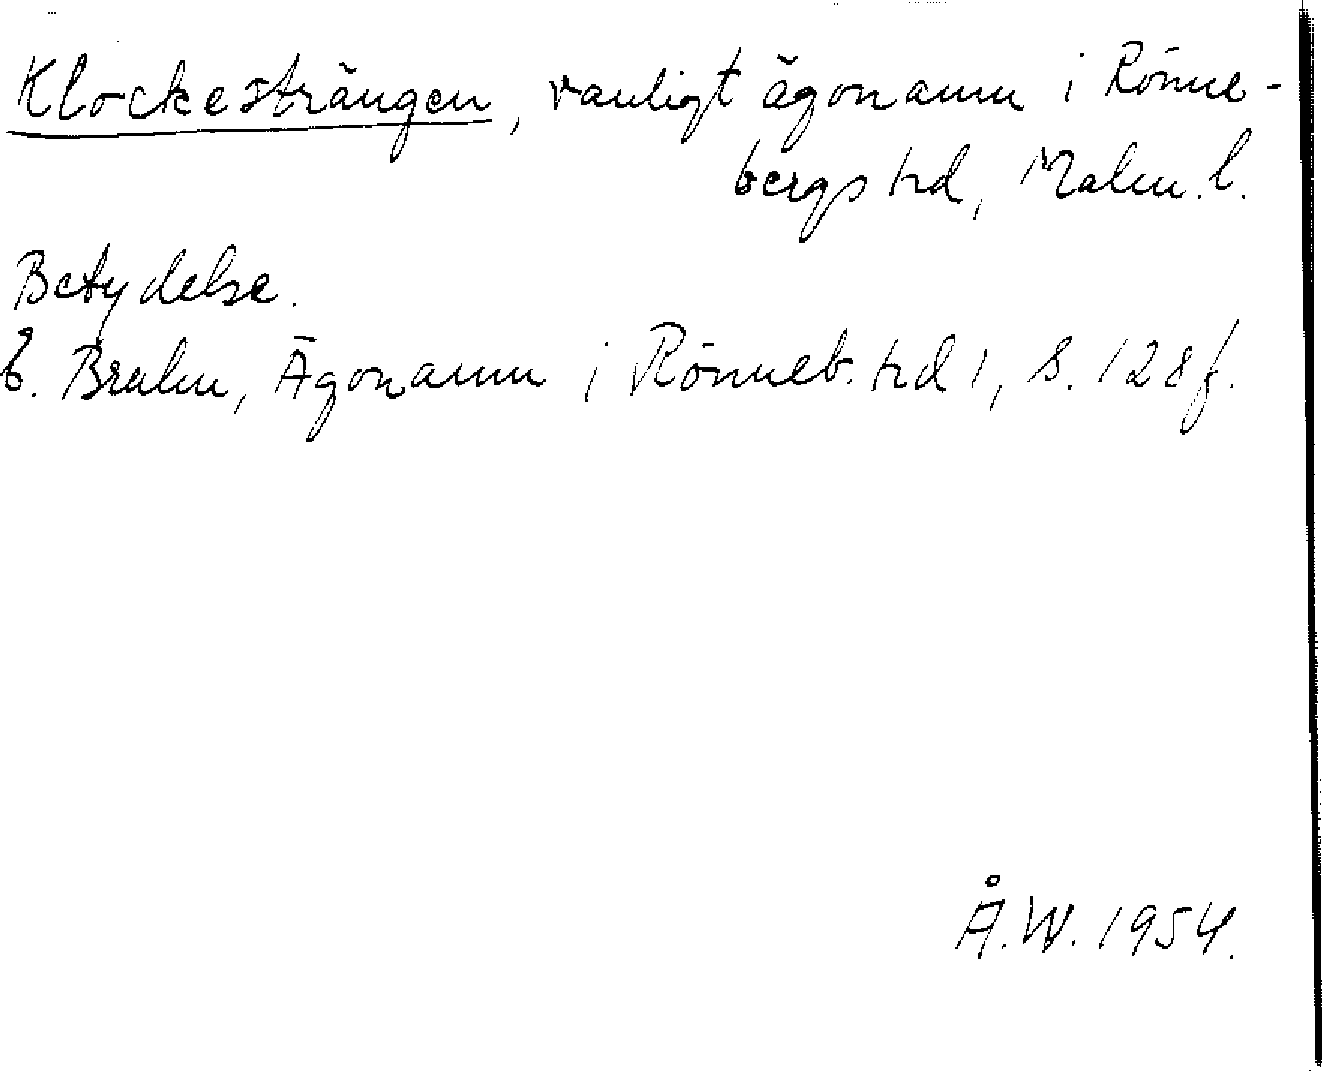 Klockesträngen, vanligt ägonamn i Rönne-
bergs hd, Malm. l.
Betydelse.
E. Brahm, Ägonamn i Rönneb. hd 1, s. 128 f.
Å. W. 1954.